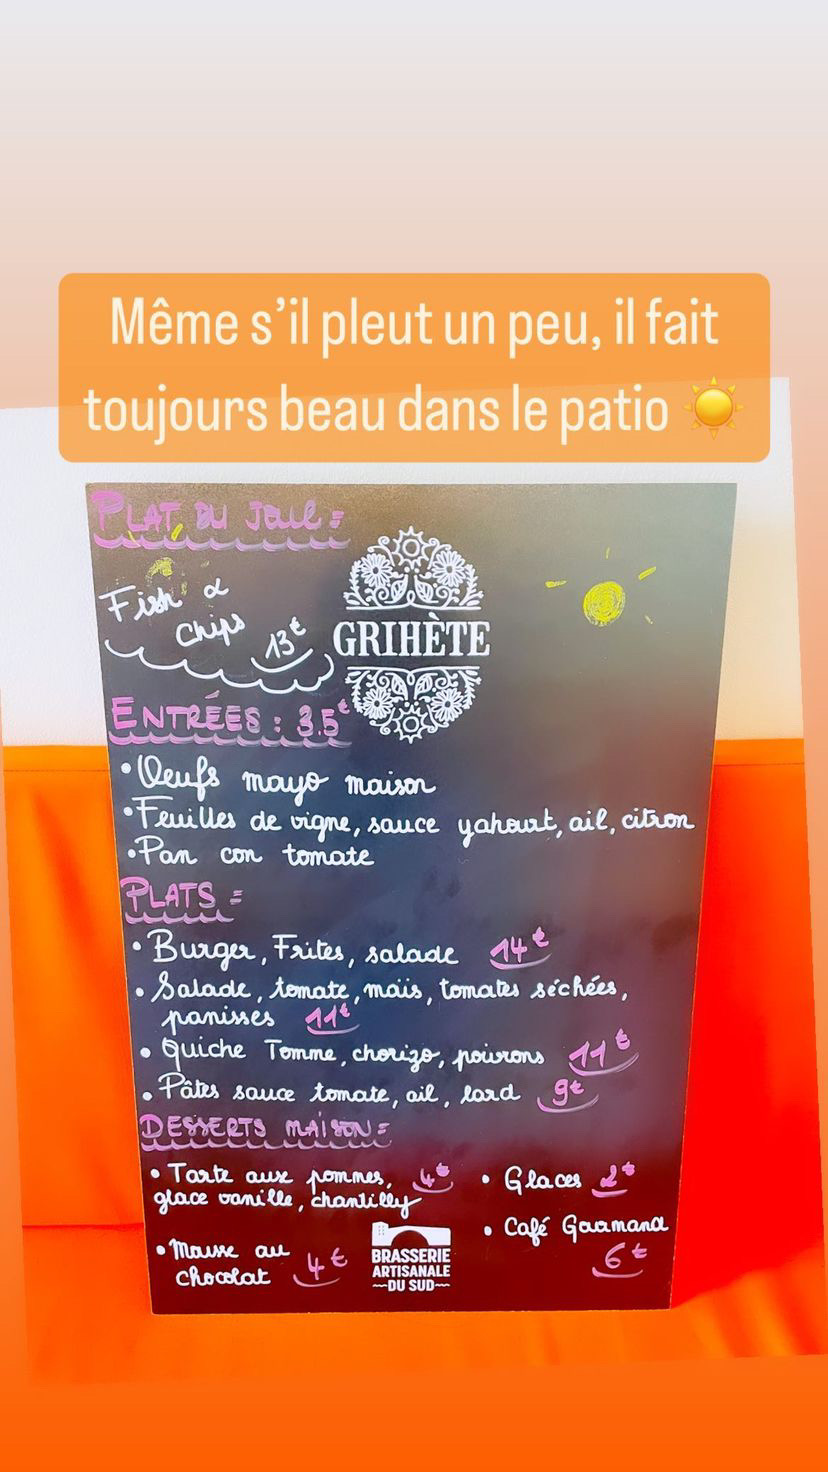 Même s’il pleut un peu, il fait
toujours beau dans le patio ☀️
PLAT DU JOUR =
Fish &
Chips 13€
GRIHÈTE
ENTRÉES : 3.5€
• Oeufs mayo maison
• Feuilles de vigne, sauce yahourt, ail, citron
• Pan con tomate
PLATS =
• Burger, Frites, salade 14€
• Salade, tomate, maïs, tomates séchées,
panisses 11€
• Quiche Tomme, chorizo, poivrons 11€
• Pâtes sauce tomate, ail, lard 9€
DESSERTS MAISON =
• Tarte aux pommes, 4€
glace vanille, chantilly
• Glaces 2€
• Café Gourmand
6€
• Mousse au
chocolat 4€
BRASSERIE
ARTISANALE
DU SUD